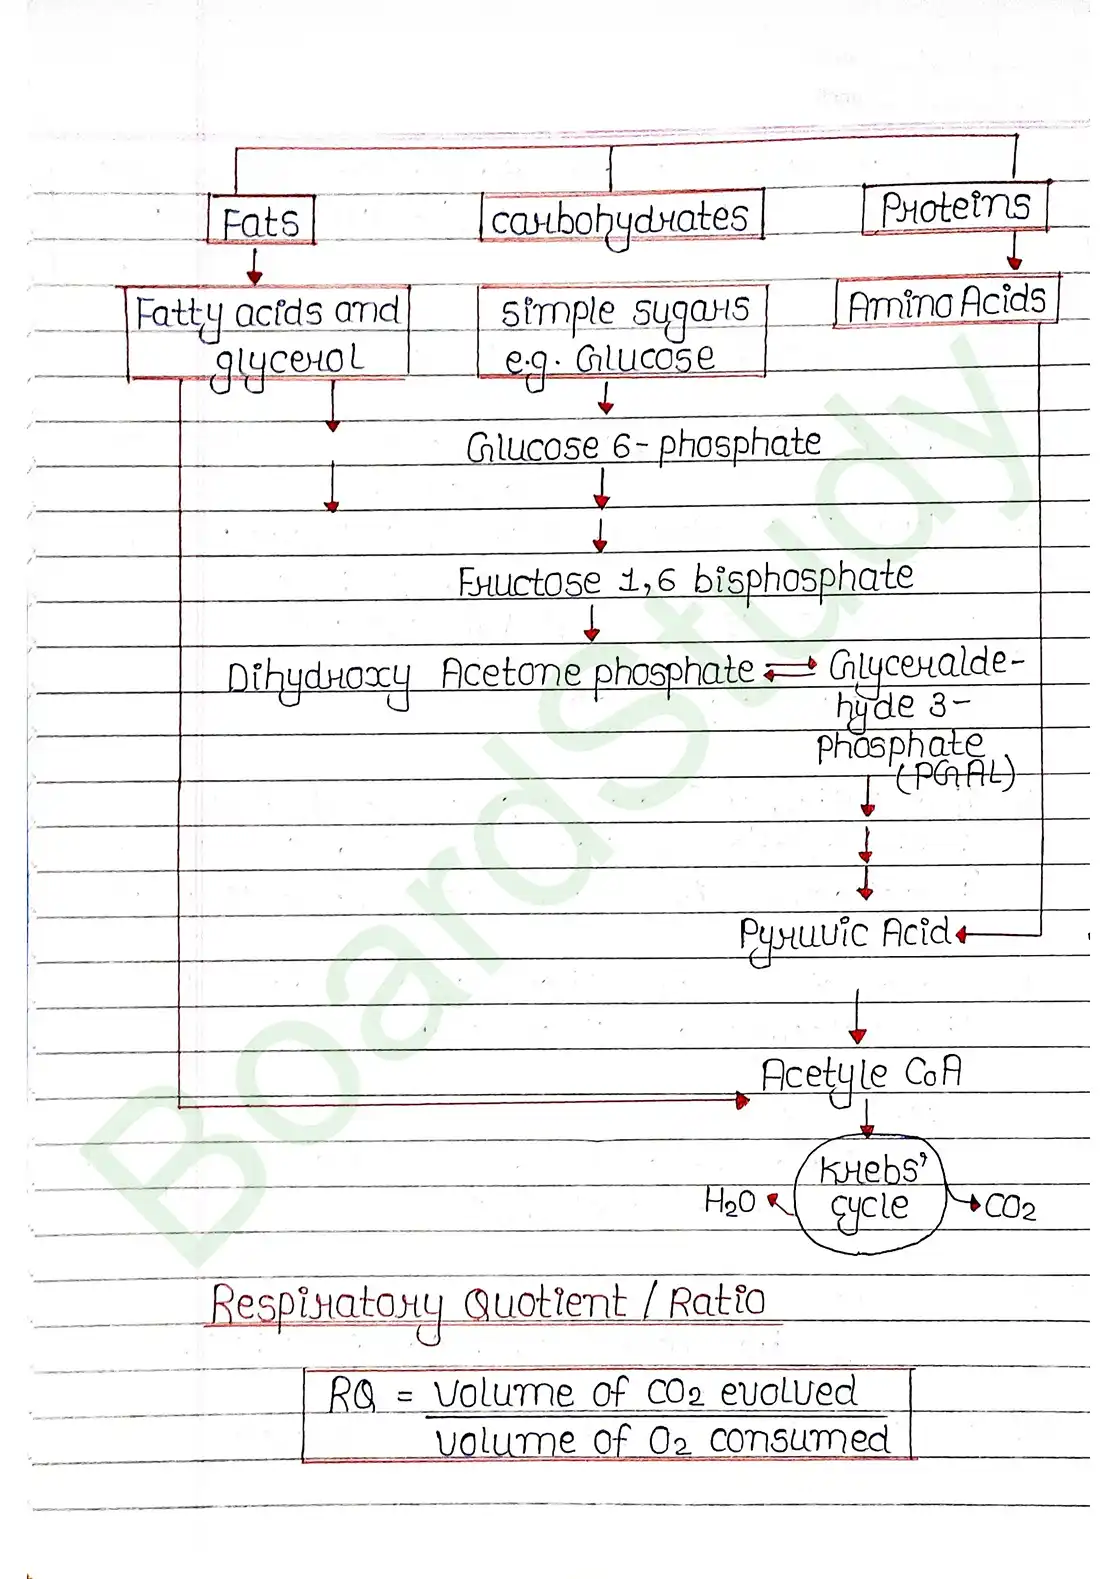 Fats
carbohydrates
Proteins
Fatty acids and
glycerol
simple sugars
e.g. Glucose
Amino Acids
Glucose 6-phosphate
Fructose 1,6 bisphosphate
Dihydroxy Acetone phosphate ⇌ Glyceralde-
hyde 3-
phosphate
(PGAL)
Pyruvic Acid
Acetyle CoA
Krebs'
cycle
H2O
CO2
Respiratory Quotient / Ratio
RQ = volume of CO2 evolved
volume of O2 consumed
BoardStudy